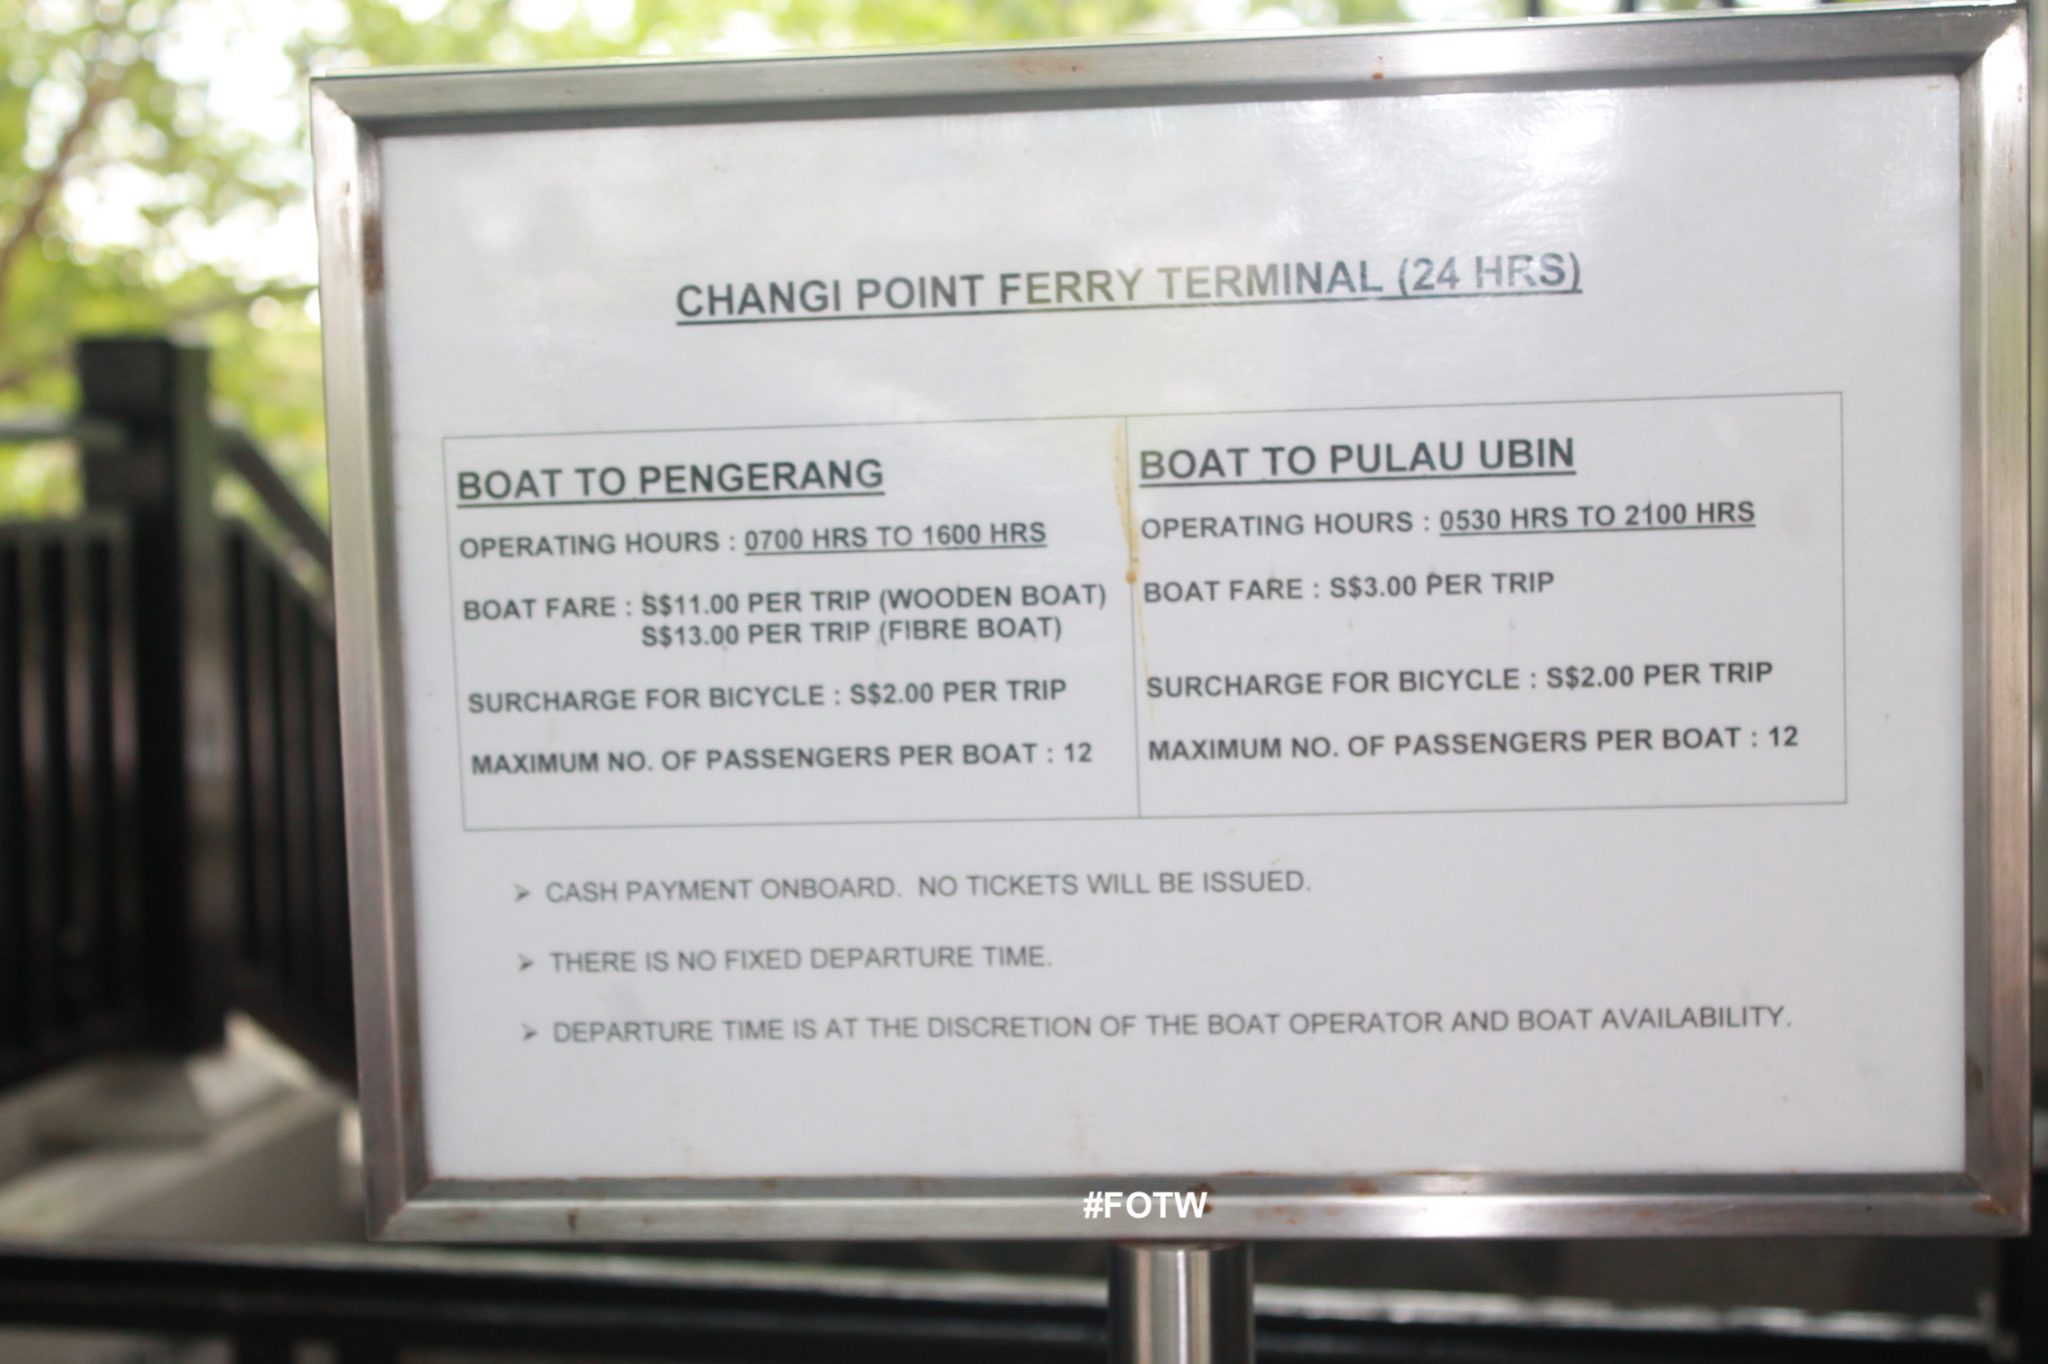 CHANGI POINT FERRY TERMINAL (24 HRS)
BOAT TO PENGERANG
OPERATING HOURS : 0700 HRS TO 1600 HRS
BOAT FARE : S$11.00 PER TRIP (WOODEN BOAT)
S$13.00 PER TRIP (FIBRE BOAT)
SURCHARGE FOR BICYCLE : S$2.00 PER TRIP
MAXIMUM NO. OF PASSENGERS PER BOAT : 12
BOAT TO PULAU UBIN
OPERATING HOURS : 0530 HRS TO 2100 HRS
BOAT FARE : S$3.00 PER TRIP
SURCHARGE FOR BICYCLE : S$2.00 PER TRIP
MAXIMUM NO. OF PASSENGERS PER BOAT : 12
➢ CASH PAYMENT ONBOARD. NO TICKETS WILL BE ISSUED.
➢ THERE IS NO FIXED DEPARTURE TIME.
➢ DEPARTURE TIME IS AT THE DISCRETION OF THE BOAT OPERATOR AND BOAT AVAILABILITY.
#FOTW